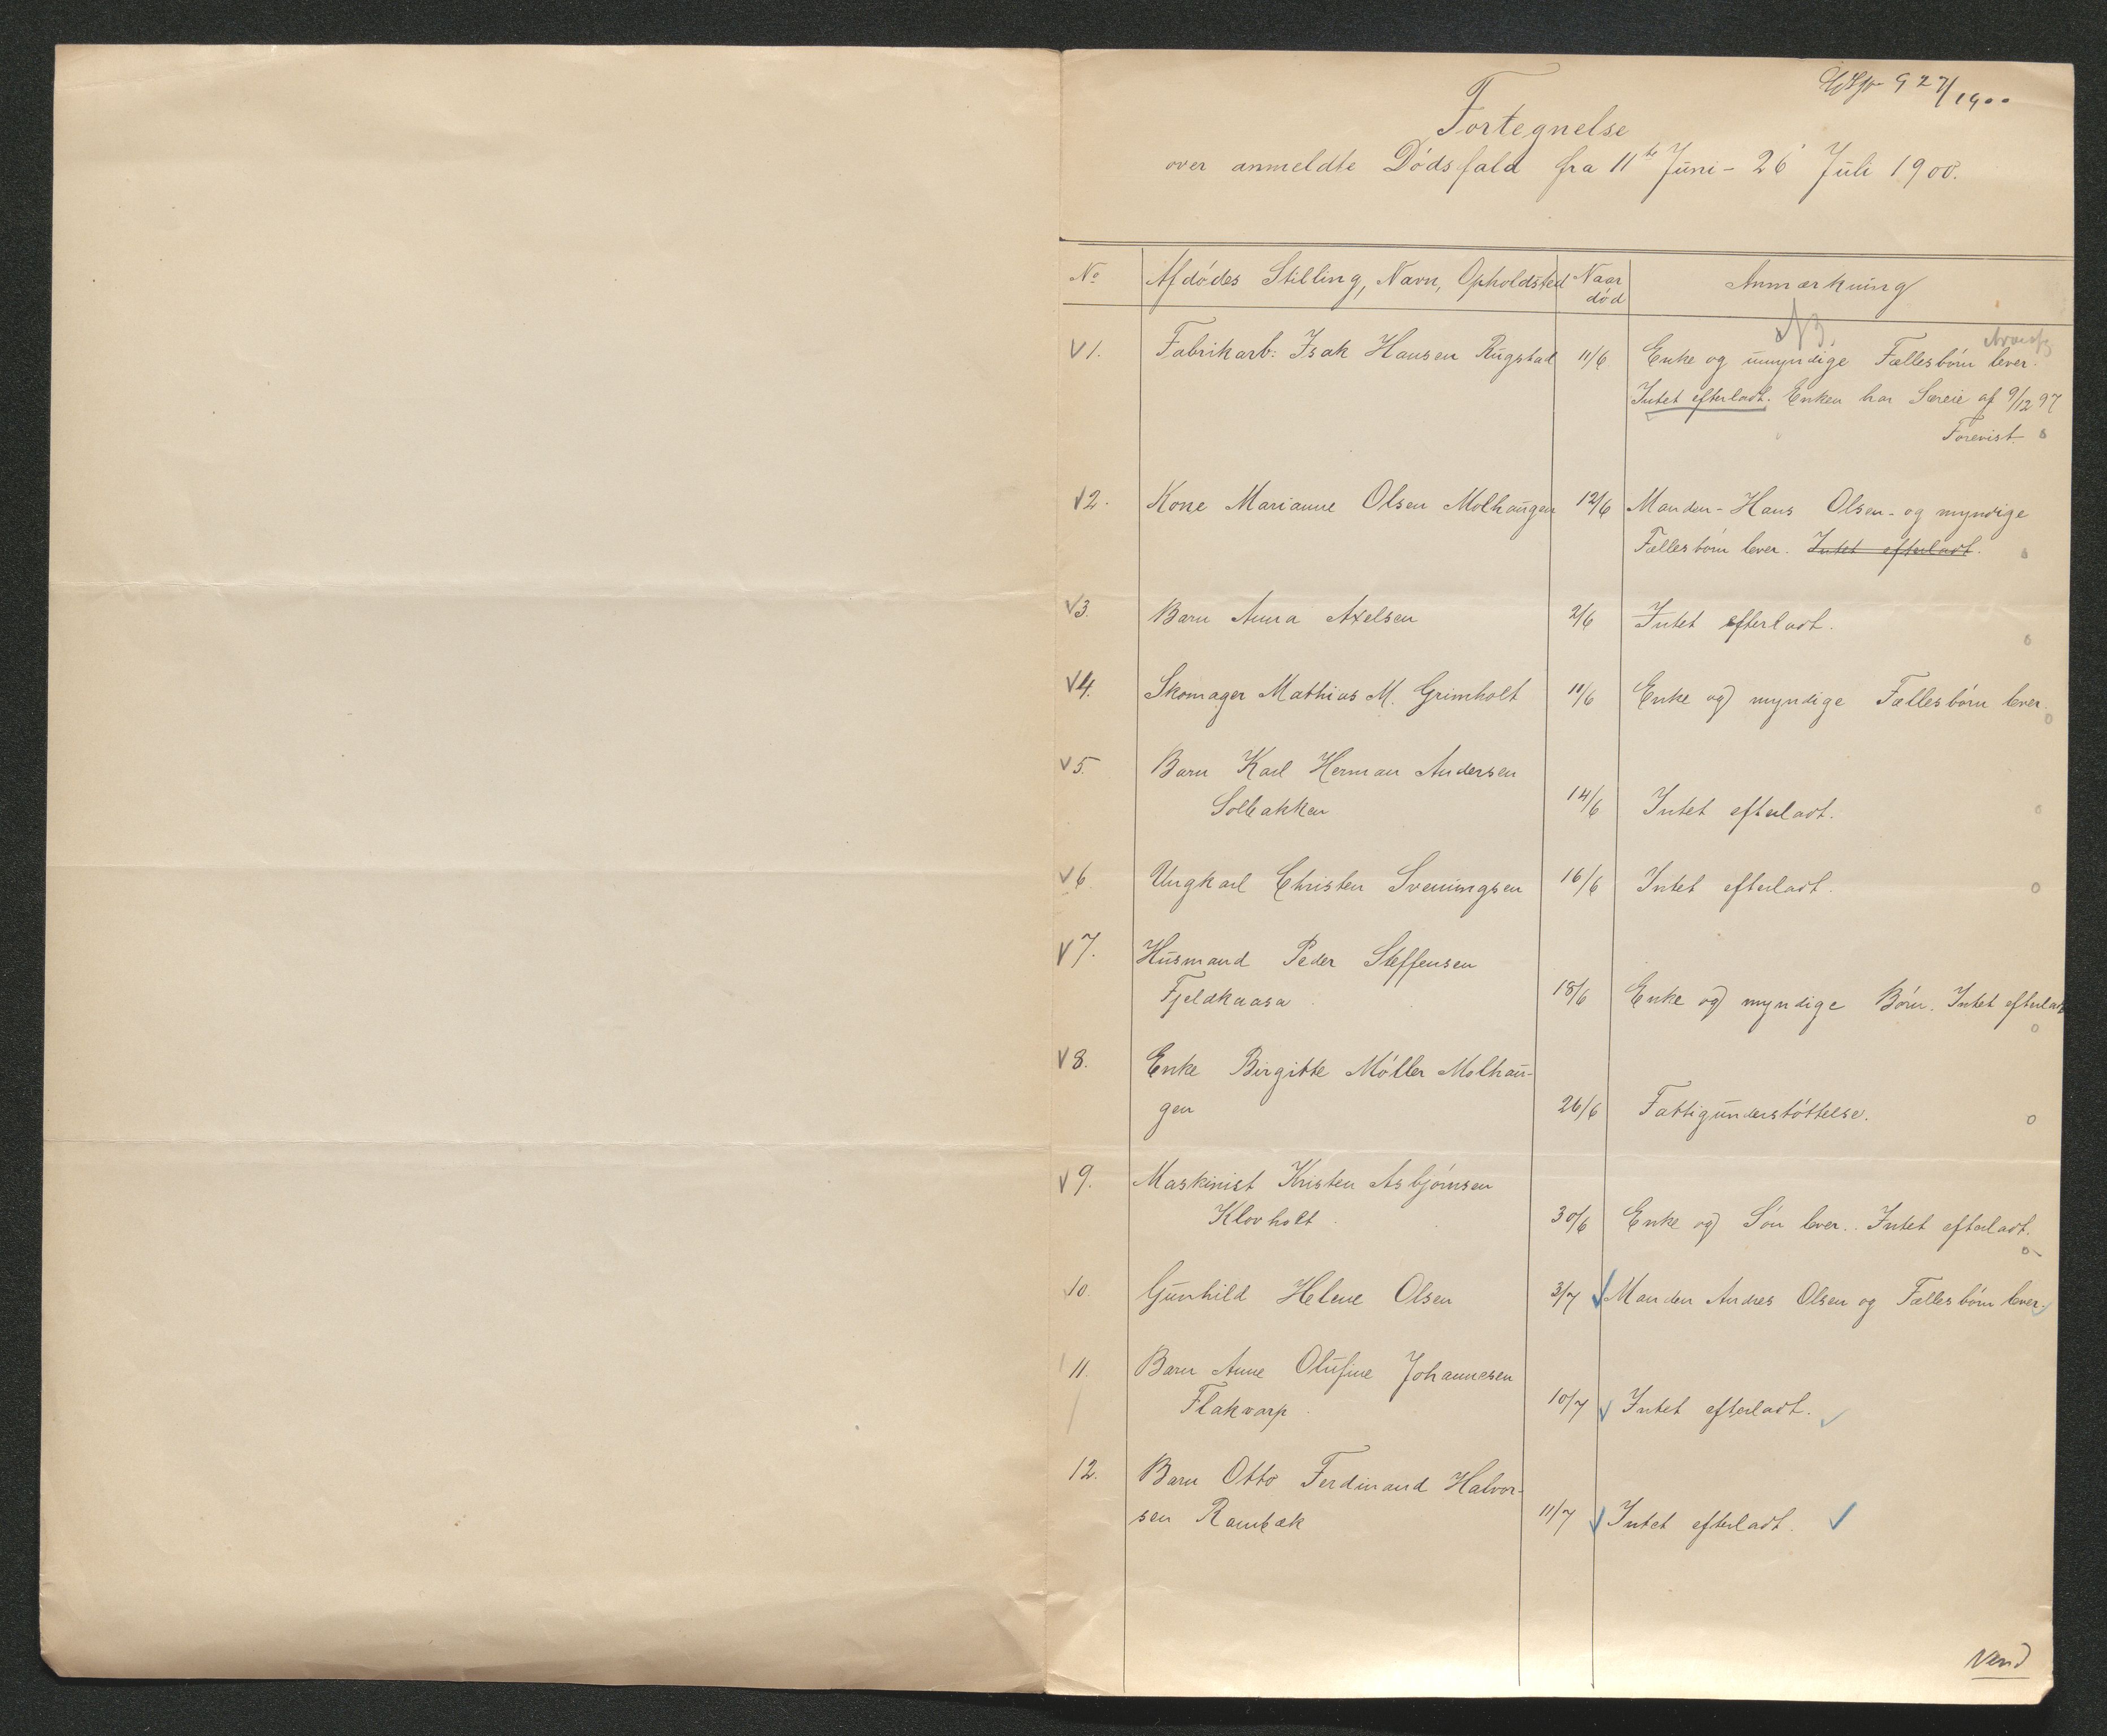 927/1900
Fortegnelse
over anmeldte Dødsfald fra 11te Juni - 26 Juli 1900.
No Afdødes Stilling, Navn, Opholdsted Naar død Anmærkning
NB.
1. Fabrikarb: Isak Hansen Rugstad 11/6 Enke og umyndige Fællesbørn lever.
Intet efterladt. Enken har Særeie af 9/12 97
Forevist.
2. Kone Marianne Olsen Molhaugen 12/6 Manden - Hans Olsen - og myndige
Fællesbørn lever. Intet efterladt.
3. Barn Anna Axelsen 2/6 Intet efterladt.
4. Skomager Mathias M. Grimholt 11/6 Enke og myndige Fællesbørn lever.
5. Barn Karl Herman Andersen
Solbakken 14/6 Intet efterladt.
6. Ungkarl Christen Sveningsen 16/6 Intet efterladt.
7. Husmand Peder Steffensen
Fjeldkaasa 18/6 Enke og myndige Børn. Intet efterladt
8. Enke Birgitte Møller Molhau-
gen 26/6 Fattigunderstøttelse.
9. Maskinist Kristen Asbjørnsen
Klovholt 30/6 Enke og Søn lever. Intet efterladt.
10. Gunhild Helene Olsen 3/7 Manden Andres Olsen og Fællesbørn lever.
11. Barn Anne Olufine Johannesen
Flakvarp 10/7 Intet efterladt.
12. Barn Otto Ferdinand Halvor-
sen Rambæk 11/7 Intet efterladt.
Vend